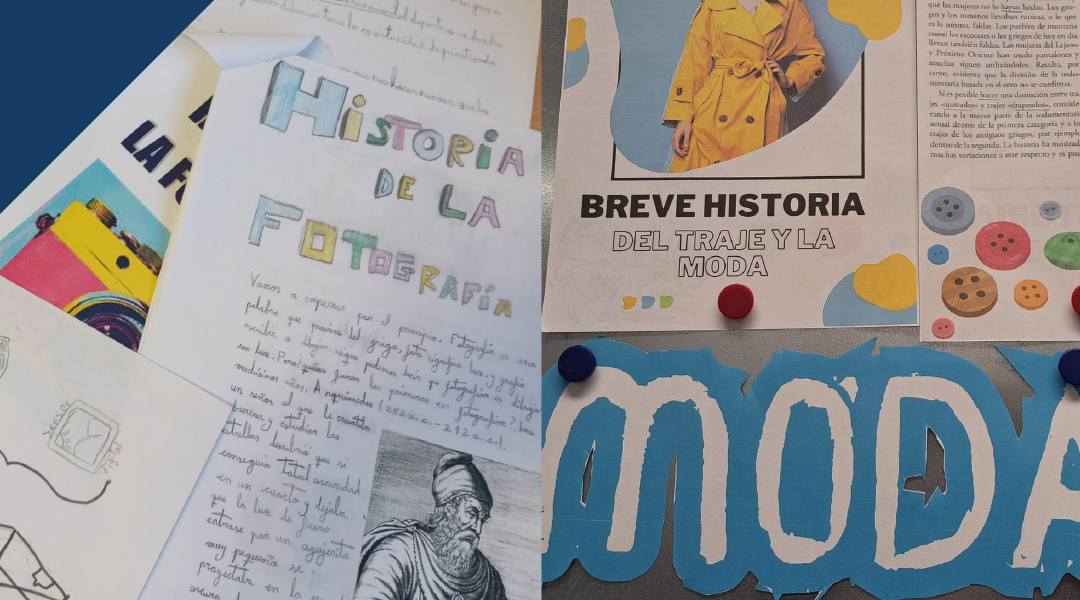 del deporte es un derecho
oportunidad de practicarlo
LA
HiSTORiA
DE LA
FOTOGRAFÍA
Vamos a empezar por el principio. Fotografía es una
palabra que proviene del griego, foto significa luz, y grafía
escribir o dibujar, asique podemos decir q fotografiar es dibujar
con luz. Pero ¿quién fueron los primeros en fotografiar?, hace
muchísimos años, Arquímedes (282a.c.-212a.c.),
un señor al que le encantaba
observar y estudiar las
estrellas descubrió que si
conseguía total oscuridad
en un cuarto y dejaba
que la luz de fuera
entrase por un agujerito
muy pequeño se
proyectaba en la
oscura
sensor
digital
BREVE HISTORIA
DEL TRAJE Y LA
MODA
que las mujeres no lo hayan hecho. Los grie-
gos y los romanos llevaban túnicas, o lo que
es lo mismo, faldas. Los pueblos de montaña
como los escoceses o los griegos de hoy en día
llevan también faldas. Las mujeres del Lejano
y Próximo Oriente han usado pantalones y
muchas siguen utilizándolos. Resulta, por
tanto, evidente que la división de la indu-
mentaria basada en el sexo no se confirma.
Sí es posible hacer una distinción entre tra-
jes «ajustados» y trajes «drapeados», conside-
rando a la mayor parte de la indumentaria
actual dentro de la primera categoría y a los
trajes de los antiguos griegos, por ejemplo
dentro de la segunda. La historia ha mostrado
muchas variaciones a este respecto y es pos
MODA